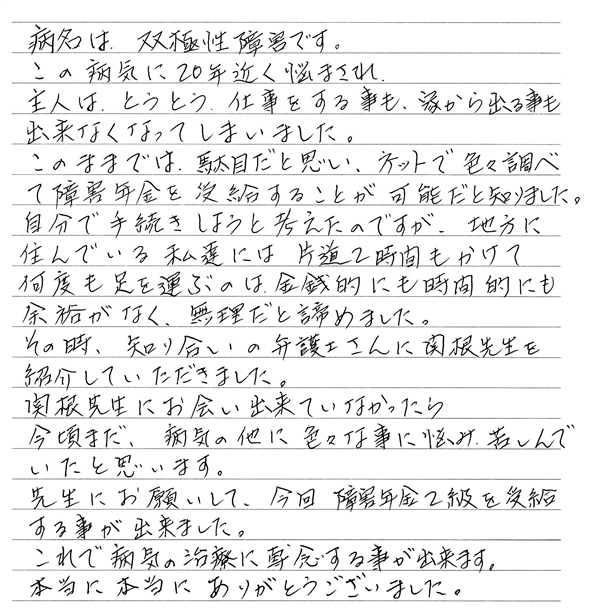 病名は、双極性障害です。
この病気に20年近く悩まされ、
主人は、とうとう、仕事をする事も、家から出る事も
出来なくなってしまいました。
このままでは、駄目だと思い、ネットで色々調べ
て障害年金を受給することが可能だと知りました。
自分で手続きしようと考えたのですが、地方に
住んでいる私達には片道2時間もかけて
何度も足を運ぶのは、金銭的にも時間的にも
余裕がなく、無理だと諦めました。
その時、知り合いの弁護士さんに関根先生を
紹介していただきました。
関根先生にお会い出来ていなかったら
今頃まだ、病気の他に色々な事に悩み、苦しんで
いたと思います。
先生にお願いして、今回障害年金2級を受給
する事が出来ました。
これで病気の治療に専念する事が出来ます。
本当に本当にありがとうございました。